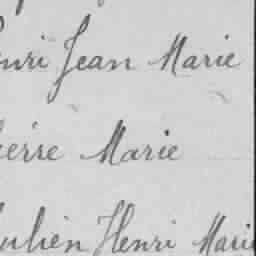 enri Jean Marie
ierre Marie
ulien Henri Marie